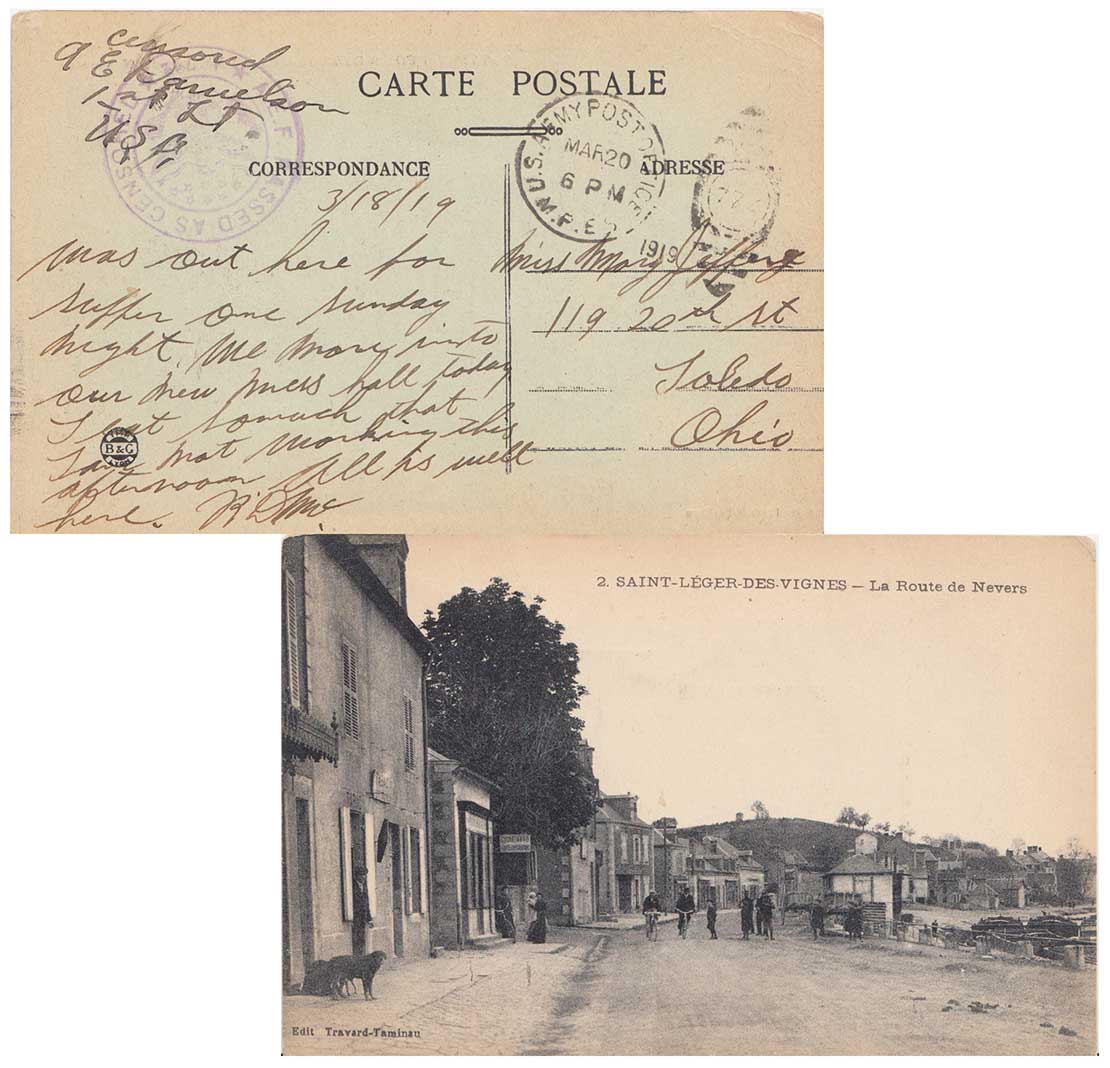 censored
A E Danielson
1st Lt
U.S.A.
A.E.F. PASSED AS CENSORED
CARTE POSTALE
CORRESPONDANCE
ADRESSE
U.S. ARMY POST OFFICE
MAR 20
6 PM
M.P.E.S.
1919
3/18/19
Was out here for
supper one Sunday
night. We move into
our new mess hall today
I eat somuch that
I am not working this
afternoon. All is well
here. R.D.Mc
B & G
LYON
Miss Mary
119 20th St
Toledo
Ohio
2. SAINT-LÉGER-DES-VIGNES — La Route de Nevers
Edit Travard-Taminau